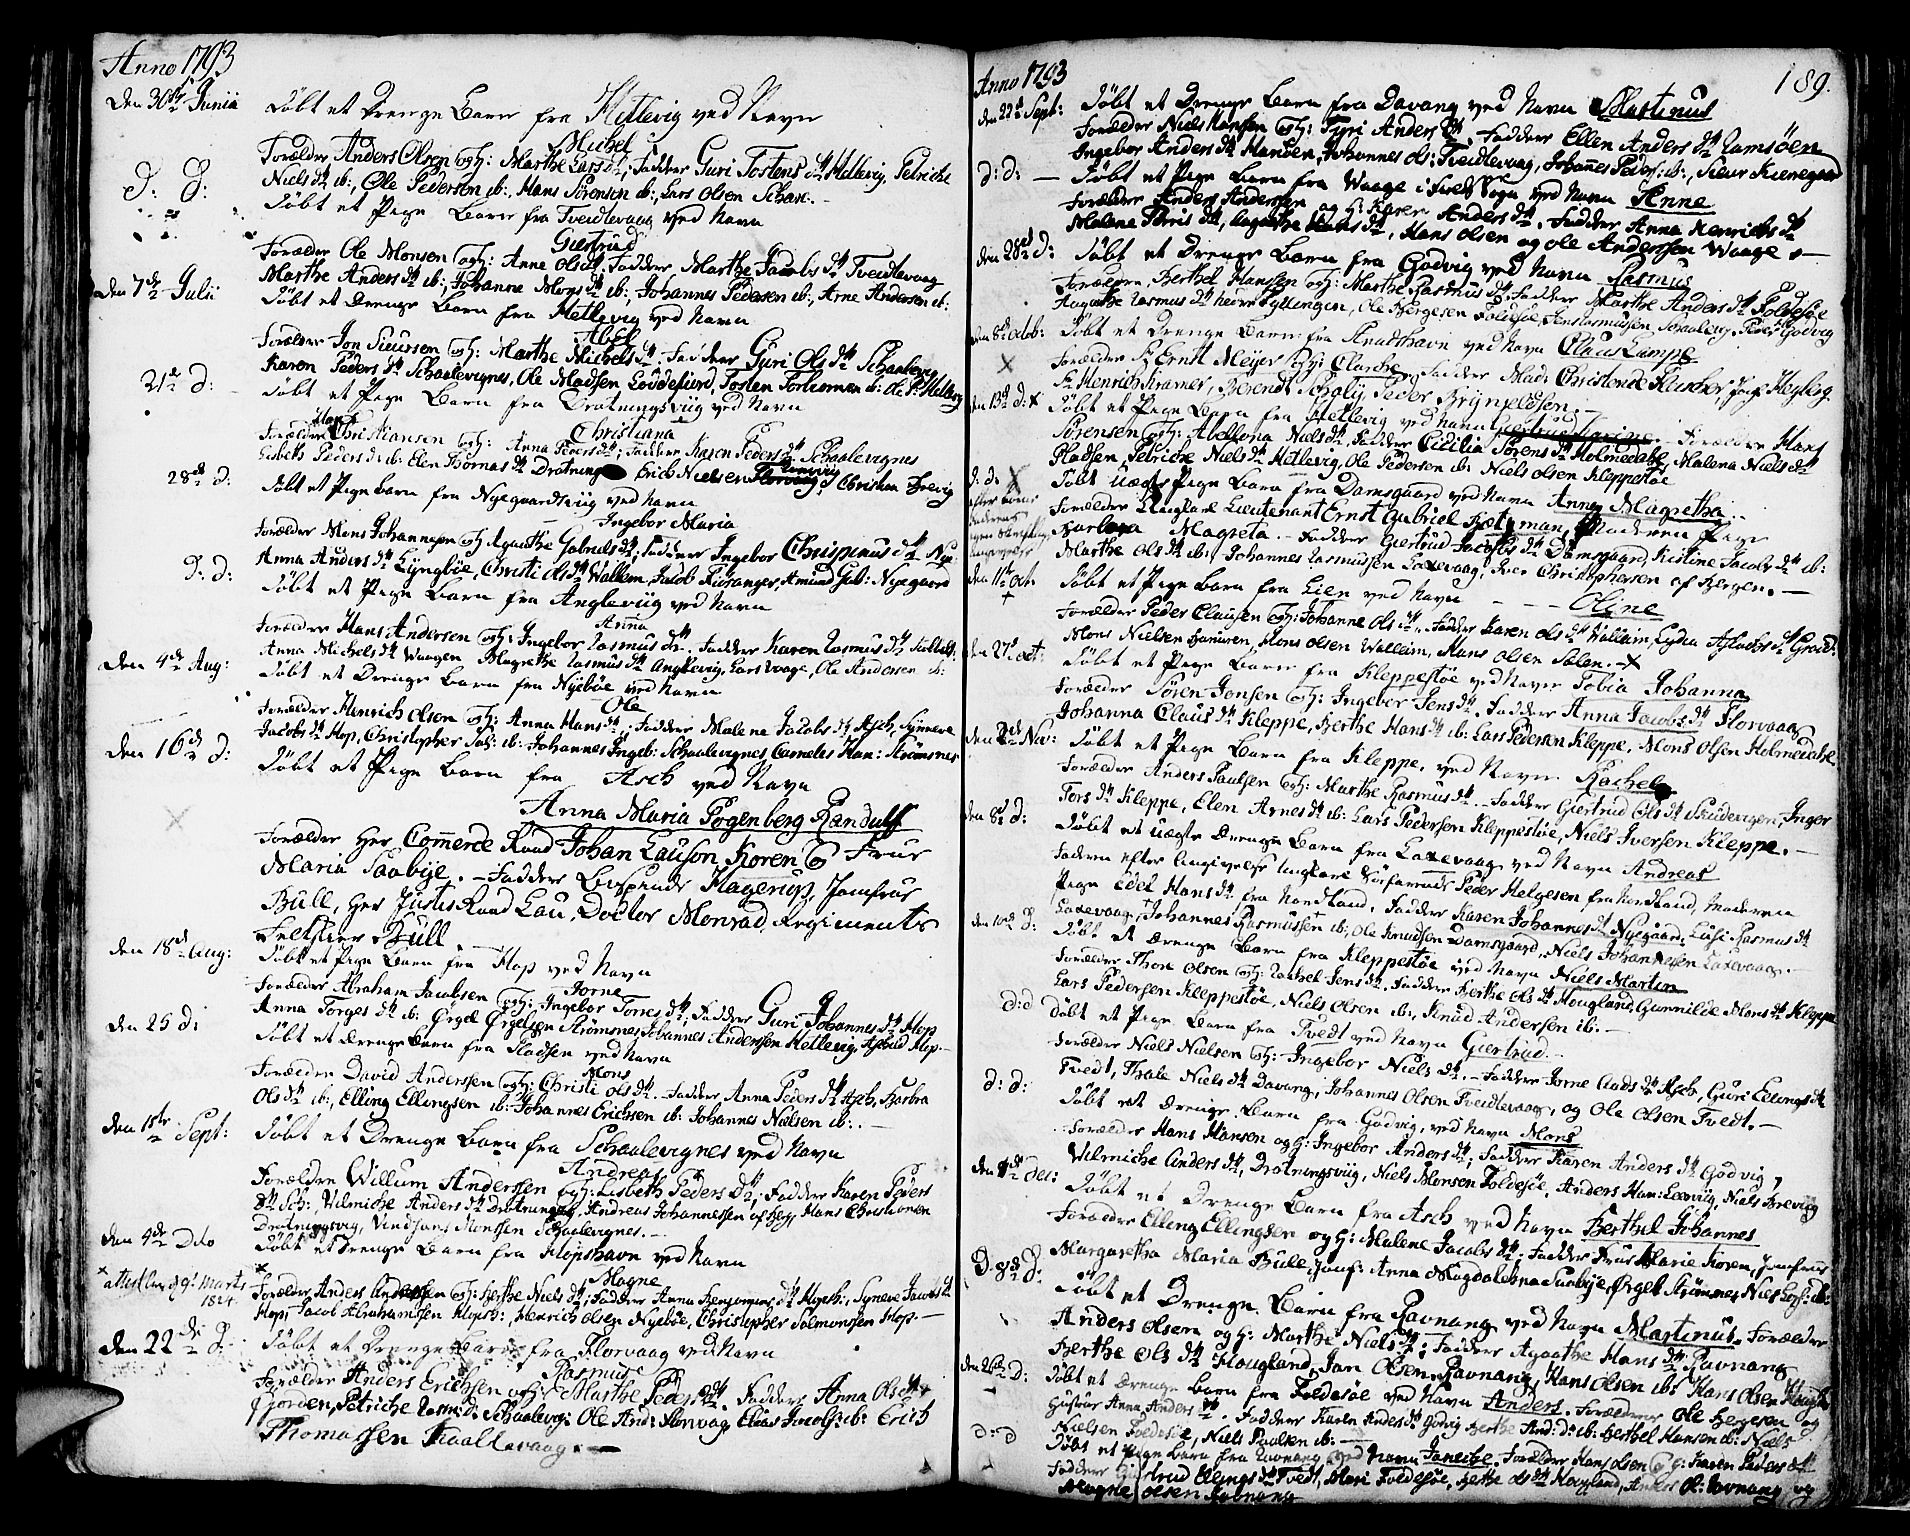 Anno 1793
den 30te Junii Döbt et Drenge Barn fra Hetlevig ved Navn
Michel
Forældre Anders Olsen og H: Marthe Lars dtr, Faddere Guri Tostens dtr Hetlevig, Petriche
Niels dtr ib:, Ole Pedersen ib:, Hans Sörensen ib:, Lars Olsen Schaae.
D: D: Döbt et Pige Barn fra Tveidtevaag ved Navn
Giertrud
Forældre Ole Monsen og H: Anne Olsdtr, Faddere Marthe Jacobs dtr Tveidtevaag
Marthe Anders dtr ib:, Johanne Mons dtr ib:, Johannes Pedersen ib:, Arne Andersen ib:
den 7de Julii Döbt et Drenge Barn fra Hetlevig ved Navn
Forældre Jon Siursen og H: Marthe Michels dtr. Faddere Guri Ols dtr Schaalevig
Karen Peders dtr Schaalevignes, Ole Madsen Loddesund, Tosten
21de D: Döbt et Pige Barn fra Drotningsviig ved Navn
Christiana
Forældre Hans Christiansen og H: Anna Peders dtr; Faddere Karen Peders dtr Schaalevignes
Lisbet Peders dtr ib: Elen Thomas dtr Drotning Erich Nielsen Christen Brevig
28de D: Döbt et Pige Barn fra Nyegaardsviig ved Navn
Ingebor Maria
Forældre Mons Johannesen og H: Agathe Gabriels dtr; Faddere Ingebor Chrispinus dtr Nye:
Anna Anders dtr Lyngböe, Christi Ols dtr Wallem, Jacob, Amund Gab: Nyegaard
D: D: Döbt et Pige Barn fra Angleviig ved Navn
Anna
Forældre Hans Andersen og H: Ingebor Rasmus dtr. Faddere Karen Rasmus dtr
Anna Michels dtr Waagen Magrethe Rasmus dtr Anglevig, Lars Waage, Ole Andersen ib:
den 4de Aug: Döbt et Drenge Barn fra Nyeböe ved Navn
Ole
Forældre Henrich Olsen og H: Anna Hans dtr. Faddere Malene Jacobs dtr Asch, Synneve
Jacobs dtr Hop, Christopher Sal: ib: Johannes Ingeb: Schaalevignes Corneles Han: Strömsnes
den 16de D: Döbt et Pige Barn fra Asch ved Navn
Anna Maria Pogenberg Randulf
Forældre Her Comerce Raad Johan Lauson Koren & Frue
Maria Saabÿe. - Faddere Hagerup, Jomfrue
Bull, Her Justis Raad Lau, Doctor Monrad, Regiments
Feltskier Bull
den 18de Aug: Döbt et Pige Barn fra Hop ved Navn
Jorne
Forældre Abraham Jacobsen og H: Ingebor Torres dtr; Faddere Guri Johannes dtr Hop
Anna Torges dtr ib: Örgel Örgelsen Strömsnes, Johannes Andersen Hetlevig, Hop
den 25 D: Döbt et Drenge Barn fra Fladsen ved Navn
Mons
Forældre David Andersen og H: Christi Ols dtr. Faddere, Anna Peders dtr Asch, Barbra
Ols dtr ib:, Elling Ellingsen ib: Johannes Erichsen ib: Johannes Nielsen ib:
den 1ste Sept: Döbt et Drenge Barn fra Schaalevignes ved Navn
Andreas
Forældre Willum Andersen og H: Lisbeth Peders Dtr, Faddere Karen Peders
Dtr Sch:, Vilmiche Anders dtr Drotning Andreas Johannessen af Berg: Hans Christiansen
Drotningsvig, Vindfons Monssen Schaalevignes.
den 4de Ddo Döbt et Drenge Barn fra Hopshavn ved Navn
Magne
attesteret d 9 Marts 1824
Forældre Anders Andersen og H: Berthe Niels dtr; Faddere Anna Benjamins dtr Hopsh:, Synneve Jacobs d:
Hop, Jacob Abrahamssen Hopsh:, Henrich Olsen Nyeböe, Christopher Salmonssen Hop.
den 22de D: Döbt et Drenge Barn fra Florvaag ved Navn
Rasmus
Forældre Anders Erichsen og H: Marthe Peders Dtr. Faddere Anna Olsdtr
Petriche Rasm: D: Schaalevig: Ole And: Florvaag Elias Jacobs: ib: Erich
Thomassen Kaaltevaag.
Anno 1793 189.
den 22d Sept: Döbt et Drenge Barn fra Davang ved Navn Martinus
Forældre Niels Hansen og H: Turi Anders dtr. Faddere Ellen Anders dtr Ramsöen
Ingebor Anders dtr Hanöen, Johannes Ols: Tveidtevaag, Johannes Peders: ib:, Siur Kiernegaard
D: D: Döbt et Pige Barn fra Waage i Field Sogn ved Navn Anne
Forældre Anders Andersen og H: Karen Anders dtr. Faddere Anna Henrichs dtr
Malene Torris dtr, Agathe Hans dtr, Hans Olsen og Ole Andersen Waage
den 28de D: Döbt et Drenge Barn fra Godvig ved Navn Rasmus
Forældre Berthel Hansen og H: Marthe Rasmus dtr; Faddere Marthe Anders dtr Foldesöe
Agathe Rasmus dtr, Ole Börgesen Foldesöe, Jens Rasmusen, Schaalevig, Peder Godvig
den 8d octob: Döbt et Drenge Barn fra Knudshavn ved Navn Claus Lampe
Forældre Sr Ernst Meÿer og H: Clarche, Faddere Mad: Christense Fascher, Jomf Heyberg
Sr Henrich Kramer, Berendt Schely, Peder Brynjeldsen.
den 13d D: Döbt et Pige Barn fra Hetlevig ved Navn Giertrud Forældre Hans
Sörensen og H: Abellona Niels dtr, Faddere Cicilia Sörens dtr Holmedahl, Malena Niels dtr
Fladsen, Petriche Niels dtr Hetlevig, Ole Pedersen ib: Niels Olsen Kleppestöe
D: D: Döbt Uægte Pige Barn fra Damsgaard ved Navn Anne Magretha
Forældre Lieutenant Ernst Gabriel, Moderen Pige
Barbara Magreta. Faddere Giertrud Jacobs dtr Damsgaard, Kistine Jacobs dtr ib:
Marthe Ols dtr ib: Johannes Rasmussen Laxevaag, Iver Christophersen af Bergen.
den 11te oct: Döbt et Pige Barn fra Lien ved Navn Oline
Forældre Peder Clausen og H: Johanne Ols dtr. Faddere Karen Ols dtr Wallem, Lydia
Mons Nielsen, Mons Olsen Wallem, Hans Olsen Salen.
den 27d oct: Döbt et Pige Barn fra Kleppestöe ved Navn Tobia Johanna
Forældre Sören Jensen og H: Ingebor Jens dtr. Faddere Anna Jacobs dtr Florvaag
Johanna Claus dtr Kleppe, Berthe Hans dtr ib: Lars Pedersen Kleppe, Mons Olsen Holmedahl
den Nov: Döbt et Pige Barn fra Kleppe, ved Navn Rachel
Forældre Anders Paulsen og H: Marthe Rasmus dtr. Faddere Giertrud Ols dtr Skudevigen, Inger
Tors dtr Kleppe, Elen Arnes dtr ib: Lars Pedersen Kleppestöe, Niels Iversen Kleppe.
den 8d D: Döbt et uægte Drenge Barn fra Laxevaag ved Navn Andreas
Faderen efter Angivelse Ungkarl Peder Helgesen fra Nordland, Moderen
Pige Edel Hans dtr fra Nordland. Faddere Karen Johannes dtr Nyegaard, Lusi Rasmus dtr
Laxevaag, Johannes Rasmussen ib: Ole Knudsen Damsgaard, Niels Johannesen Laxevaag.
den 10d D: Döbt et Drenge Barn fra Kleppestöe ved Navn Niels Martin
Forældre Thore Olsen og H: Rachel Jens dtr. Faddere Berthe Ols dtr Hougland, Gunnilde Mons dtr Kleppe
Lars Pedersen Kleppestöe, Niels Olsen ib:, Knud Andersen ib:
D: d Döbt et Pige Barn fra Tvedt ved Navn Giertrud.
Forældre Niels Nielsen og H: Ingebor Niels dtr. Faddere Jorne Aads dtr Asch, Guri Ellings dtr
Tvedt, Thale Niels dtr Davang, Johannes Olsen Tveidtevaag, og Ole Olsen Tvedt.
D: D: Döbt et Drenge Barn fra Godvig, ved Navn Mons
Forældre Hans Hansen og H: Ingebor Anders dtr; Faddere Karen Anders dtr Godvig,
Vilmiche Anders dtr, Drotningsviig, Niels Monsen Foldesöe, Anders Han: Leervig, Niels Brevig
den Dec: Döbt et Drenge Barn fra Asch ved Navn Berthel Johannes
Forældre Elling Ellingsen og H: Malene Jacobs dtr; Faddere Frue Marie Koren, Jomfrue
Margaretha Maria Bull, Jomf: Anna Magdalena Saabÿe, Örgel Strömsnes, Niels ib:
D. 8de D: Döbt et Drenge Barn fra Ravnang ved Navn Martinus. Forældre
Anders Olsen og H: Marthe Niels dtr; Faddere Agaathe Hans dtr Ravnang
Berthe Ols dtr Hougland, Jan Olsen Ravnang, Hans Olsen ib: Hans Olsen
den 26de D: Döbt et Drenge Barn fra Foldesöe ved Navn Anders. Forældrene Ole Börgesen og
Hustrue Anna Anders dtr. Faddere Karen Anders dtr Godvig Berthe And: D: ib: Berthel Hansen ib: Niels
Nielsen Foldesöe, Niels Paulsen ib:
D: D Döbt et Pige Barn fra Ravnang ved Navn Forældre Hans Olsen og H: Karen Peders dtr
Faddere Giertrud Ellings dtr Tvedt, Mari Foldesöe, Berthe Ols dtr Hougland, Anders Ol: Ravnang og
Magne Olsen Ravnang